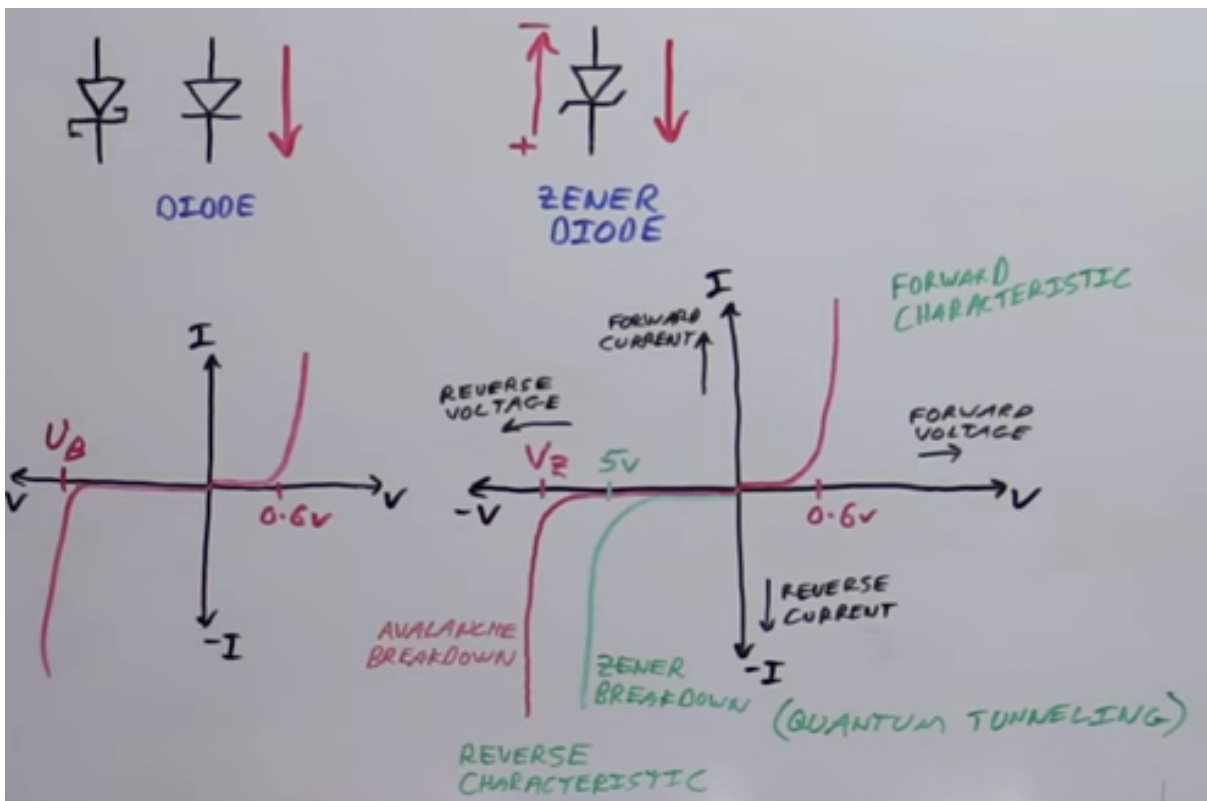 -
+
DIODE
ZENER
DIODE
I
V_B
V
0.6V
V
-I
I
FORWARD
CURRENT
FORWARD
CHARACTERISTIC
REVERSE
VOLTAGE
FORWARD
VOLTAGE
V_Z
5V
-V
0.6V
V
REVERSE
CURRENT
-I
AVALANCHE
BREAKDOWN
ZENER
BREAKDOWN
(QUANTUM TUNNELING)
REVERSE
CHARACTERISTIC